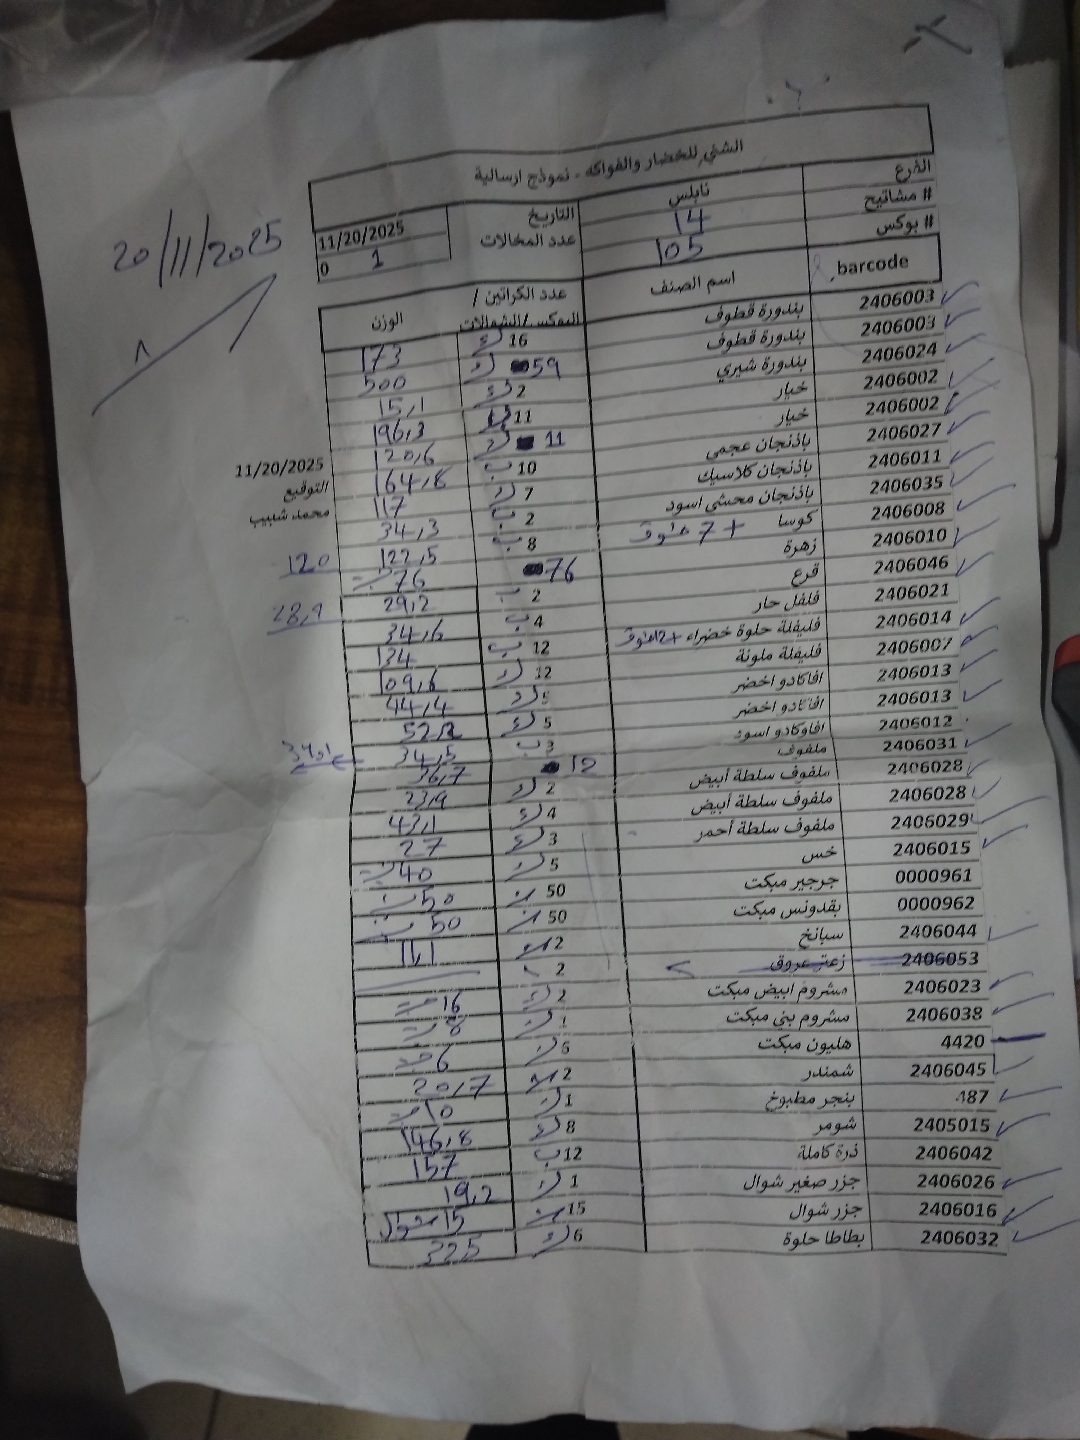 الشني للخضار والفواكه - نموذج ارسالية
الفرع نابلس التاريخ 11/20/2025
# مشاتيح 14 عدد المخالات 0 1
# بوكس 105
20/11/2025
barcode اسم الصنف عدد الكراتين / البوكس/الشوالات الوزن
2406003 بندورة قطوف 16 173
2406003 بندورة قطوف 59 500
2406024 بندورة شيري 2 15,1
2406002 خيار 11 196,3
2406002 خيار 11 120,6
2406027 باذنجان عجمي 10 164,8
2406011 باذنجان كلاسيك 7 117
2406035 باذنجان محشي اسود 2 34,3
2406008 كوسا + 7 8 122,5 120
2406010 زهرة 76 76
2406046 قرع 2 29,2 28,1
2406021 فلفل حار 4 34,6
2406014 فليفلة حلوة خضراء 12 134
2406007 فليفلة ملونة 12 109,6
2406013 افاكادو اخضر 5 44,4
2406013 افاكادو اخضر 5
2406012 افاوكادو اسود 3 34,5
2406031 ملفوف 36,7
2406028 ملفوف سلطة أبيض 2 23,9
2406028 ملفوف سلطة أبيض 4 43,1
2406029 ملفوف سلطة أحمر 3 27
2406015 خس 5 40
0000961 جرجير مبكت 50 50
0000962 بقدونس مبكت 50 50
2406044 سبانخ 2 11,1
2406053 زعتر عروق 2
2406023 مشروم ابيض مبكت 2 16
2406038 مشروم بني مبكت 1 8
4420 هليون مبكت 6
2406045 شمندر 2 20,7
187 بنجر مطبوخ 1 10
2405015 شومر 8 146,8
2406042 ذرة كاملة 12 157
2406026 جزر صغير شوال 1 19,2
2406016 جزر شوال 15 15 شوال
2406032 بطاطا حلوة 6 325
11/20/2025
التوقيع
محمد شبيب